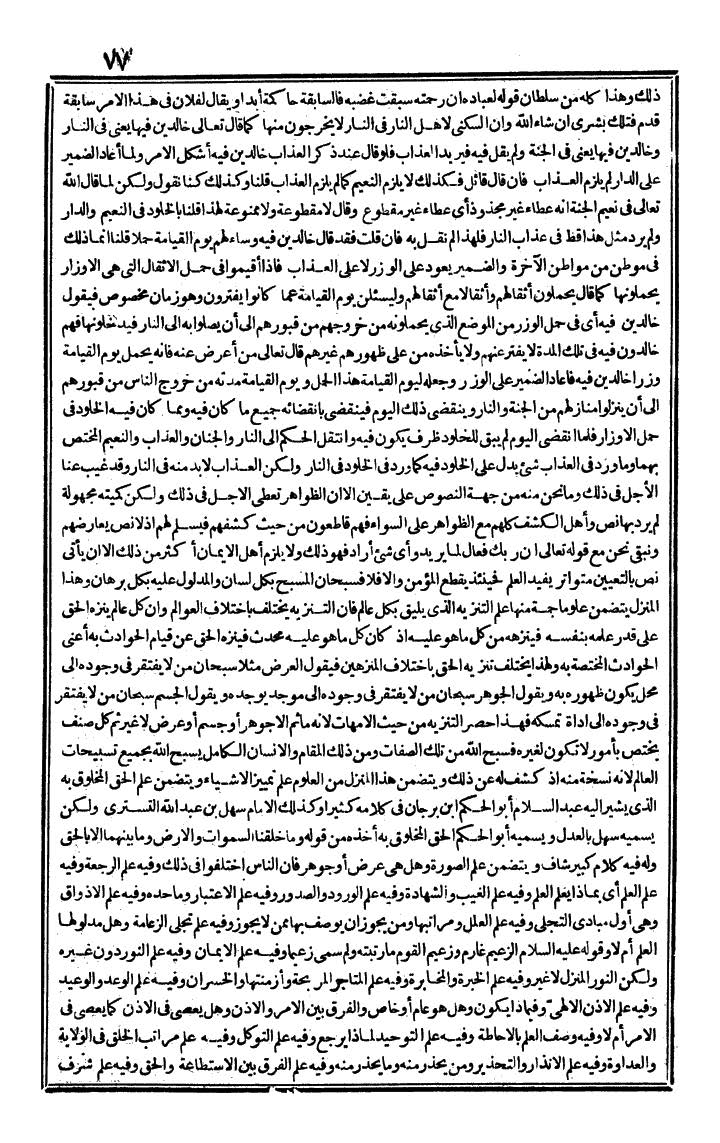 ٧٧
ذلك وهذا كله من سلطان قوله لعباده ان رحمته سبقت غضبه فالسابقة حاكمة أبدا ويقال لفلان فى هذا الامر سابقة
قدم فتلك بشرى ان شاء الله وان السكنى لاهل النار فى النار لا يخرجون منها كما قال تعالى خالدين فيها يعنى فى النار
وخالدين فيها يعنى فى الجنة ولم يقل فيه فيريد العذاب فلو قال عند ذكر العذاب خالدين فيه أشكل الامر ولما أعاد الضمير
على الدار لم يلزم العذاب فان قال قائل فكذلك لا يلزم النعيم كما لم يلزم العذاب قلنا وكذلك كنا نقول ولكن لما قال الله
تعالى فى نعيم الجنة انه عطاء غير مجذوذ أى عطاء غير مقطوع وقال لا مقطوعة ولا ممنوعة لهذا قلنا بالخلود فى النعيم والدار
ولم يرد مثل هذا قط فى عذاب النار فلهذا لم نقل به فان قلت فقد قال خالدين فيه وساء لهم يوم القيامة حملا قلنا انما ذلك
فى موطن من مواطن الآخرة والضمير يعود على الوزر لا على العذاب فاذا أقيموا فى حمل الاثقال التى هى الاوزار
يحملونها كما قال يحملون أثقالهم وأثقالا مع أثقالهم وليسئلن يوم القيامة عما كانوا يفترون وهو زمان مخصوص فيقول
خالدين فيه أى فى حمل الوزر من الموضع الذى يحملونه من خروجهم من قبورهم الى أن يصلوا به الى النار فيدخلونها فهم
خالدون فيه فى تلك المدة لا يفتر عنهم ولا يأخذه من على ظهورهم غيرهم قال تعالى من أعرض عنه فانه يحمل يوم القيامة
وزرا خالدين فيه فاعاد الضمير على الوزر وجعله ليوم القيامة هذا الحمل ويوم القيامة مدته من خروج الناس من قبورهم
الى أن ينزلوا منازلهم من الجنة والنار وينقضى ذلك اليوم فينقضى بانقضائه جميع ما كان فيه ومما كان فيه الخلود فى
حمل الاوزار فلما انقضى اليوم لم يبق للخلود ظرف يكون فيه وانتقل الحكم الى النار والجنان والعذاب والنعيم المختص
بهما وما ورد فى العذاب شئ يدل على الخلود فيه كما ورد فى الخلود فى النار ولكن العذاب لابد منه فى النار وقد غيب عنا
الأجل فى ذلك وما نحن منه من جهة النصوص على يقين الا ان الظواهر تعطى الاجل فى ذلك ولكن كميته مجهولة
لم يرد بها نص وأهل الكشف كلهم مع الظواهر على السواء فهم قاطعون من حيث كشفهم فيسلم لهم اذ لا نص يعارضهم
ونبقى نحن مع قوله تعالى ان ربك فعال لما يريد وأى شئ أراد فهو ذلك ولا يلزم أهل الايمان أكثر من ذلك الا ان يأتى
نص بالتعيين متواتر يفيد العلم فحينئذ يقطع المؤمن والا فلا فسبحان المسبح بكل لسان والمدلول عليه بكل برهان وهذا
المنزل يتضمن علوما جمة منها علم التنزيه الذى يليق بكل عالم فان التنزيه يختلف باختلاف العوالم وان كل عالم ينزه الحق
على قدر علمه بنفسه فينزهه من كل ما هو عليه اذ كان كل ما هو عليه محدث فينزه الحق عن قيام الحوادث به أعنى
الحوادث المختصة به ولهذا يختلف تنزيه الحق باختلاف المنزهين فيقول العرض مثلا سبحان من لا يفتقر فى وجوده الى
محل يكون ظهوره به ويقول الجوهر سبحان من لا يفتقر فى وجوده الى موجد يوجده ويقول الجسم سبحان من لا يفتقر
فى وجوده الى اداة تمسكه فهذا حصر التنزيه من حيث الامهات لانه ما ثم الا جوهر أو جسم أو عرض لا غير ثم كل صنف
يختص بأمور لا تكون لغيره فسبح الله من تلك الصفات ومن ذلك المقام والانسان الكامل يسبح الله بجميع تسبيحات
العالم لانه نسخة منه اذ كشف له عن ذلك ويتضمن هذا المنزل من العلوم علم تمييز الاشياء ويتضمن علم الحق المخلوق به
الذى يشير اليه عبد السلام أبو الحكم ابن برجان فى كلامه كثيرا وكذلك الامام سهل بن عبد الله التسترى ولكن
يسميه سهل بالعدل ويسميه أبو الحكم الحق المخلوق به أخذه من قوله وما خلقنا السموات والارض وما بينهما الا بالحق
وله فيه كلام كبير شاف ويتضمن علم الصورة وهل هى عرض أو جوهر فان الناس اختلفوا فى ذلك وفيه علم الرجعة وفيه
علم العلم أى بماذا يعلم العلم وفيه علم الغيب والشهادة وفيه علم الورود والصدور وفيه علم الاعتبار وما حده وفيه علم الاذواق
وهى أول مبادى التجلى وفيه علم العلل ومراتبها ومن يجوز ان يوصف بها ممن لا يجوز وفيه علم تجلى الزعامة وهل مدلولها
العلم أم لا وقوله عليه السلام الزعيم غارم وزعيم القوم ما رتبته ولم سمى زعيما وفيه علم الايمان وفيه علم النور دون غيره
ولكن النور المنزل لا غير وفيه علم الخبرة والمخابرة وفيه علم المتاجر المربحة وأزمنتها والخسران وفيه علم الوعد والوعيد
وفيه علم الاذن الالهى وفيماذا يكون وهل هو عام أو خاص والفرق بين الامر والاذن وهل يعصى فى الاذن كما يعصى فى
الامر أم لا وفيه وصف العلم بالاحاطة وفيه علم التوحيد لماذا يرجع وفيه علم التوكل وفيه علم مراتب الخلق فى الولاية
والعداوة وفيه علم الانذار والتحذير ومن يحذر منه وما يحذر منه وفيه علم الفرق بين الاستطاعة والحق وفيه علم شرف